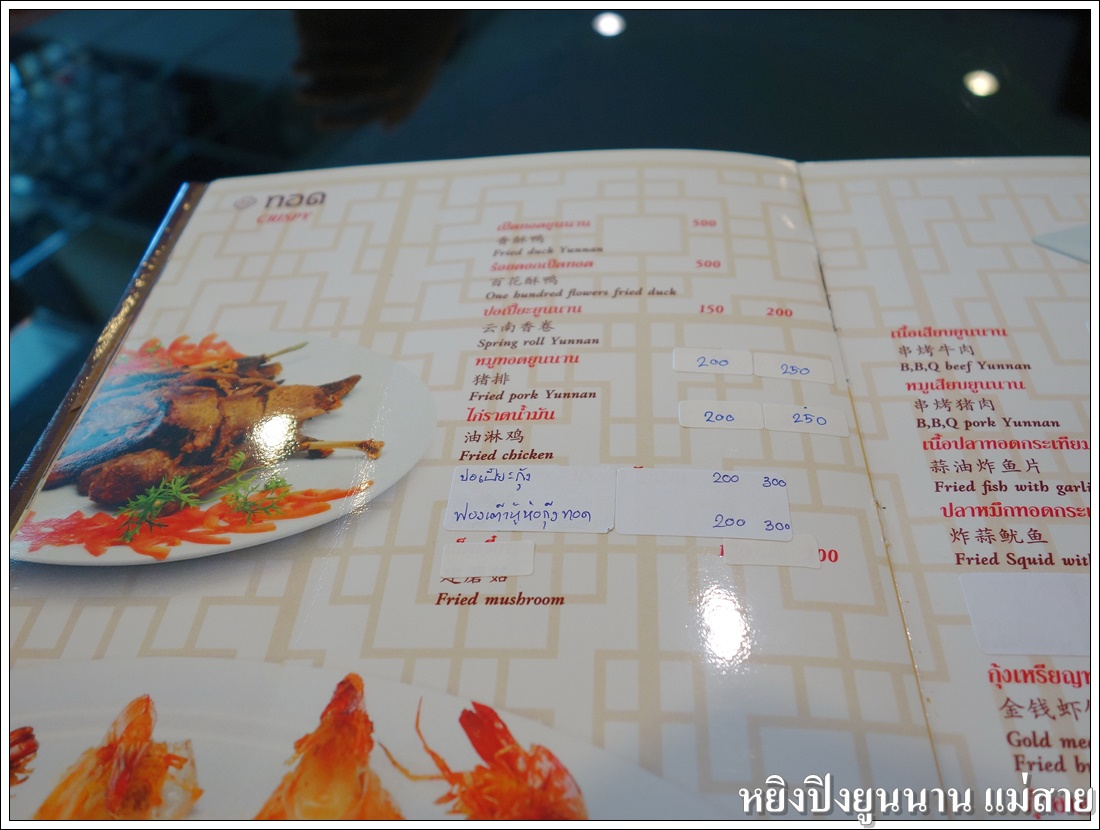 ทอด
CRISPY
เป็ดทอดยูนนาน 500
香酥鸭
Fried duck Yunnan
ร้อยดอกเป็ดทอด 500
百花酥鸭
One hundred flowers fried duck
ปอเปี๊ยะยูนนาน 150 200
云南香卷
Spring roll Yunnan
หมูทอดยูนนาน 200 250
猪排
Fried pork Yunnan
ไก่ราดน้ำมัน 200 250
油淋鸡
Fried chicken
ปอเปี๊ยะกุ้ง 200 300
ฟองเต้าหู้ห่อกุ้งทอด 200 300
00
Fried mushroom
เนื้อเสียบยูนนาน
串烤牛肉
B,B,Q beef Yunnan
หมูเสียบยูนนาน
串烤猪肉
B,B,Q pork Yunnan
เนื้อปลาทอดกระเทียม
蒜油炸鱼片
Fried fish with garli
ปลาหมึกทอดกระเ
炸蒜鱿鱼
Fried Squid wit
กุ้งเหรียญท
金钱虾
Gold me
Fried b
หยิงปิงยูนนาน แม่สาย